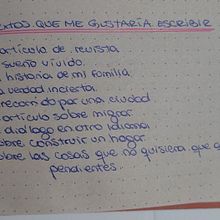 EXTOS QUE ME GUSTARÍA ESCRIBIR
artículo de revista
sueño vívido.
historia de mi familia
a verdad incierta
recorrido por una ciudad
artículo sobre migrar
diálogo en otro idioma
obre construir un hogar
obre las cosas que no quisiera que q
pendientes.